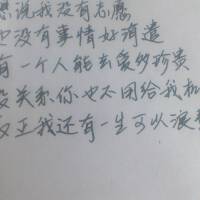 想说我没有志愿
也没有事情好消遣
有一个人能去爱多珍贵
没关系你也不用给我机
反正我还有一生可以浪